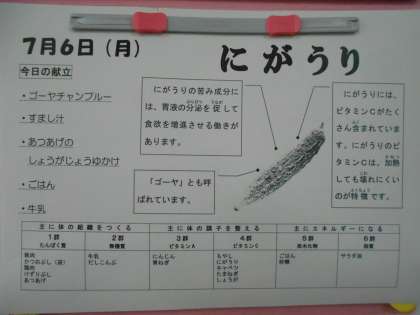 7月6日（月）
にがうり
今日の献立
・ゴーヤチャンプルー
・すまし汁
・あつあげの
しょうがじょうゆかけ
・ごはん
・牛乳
にがうりの苦み成分に
は、胃液の分泌を促して
食欲を増進させる働きが
あります。
「ゴーヤ」とも呼
ばれています。
にがうりには、
ビタミンCがたく
さん含まれていま
す。にがうりの
ビタミンCは、加熱
しても壊れにくい
のが特徴です。
主に体の組織をつくる 主に体の調子を整える 主にエネルギーになる
1群 2群 3群 4群 5群 6群
たんぱく質 無機質 ビタミンA ビタミンC 炭水化物 脂質
豚肉
かつおぶし（節）
鶏肉
けずりぶし
あつあげ
牛乳
だしこんぶ
にんじん
青ねぎ
もやし
にがうり
キャベツ
たまねぎ
しょうが
ごはん
砂糖
サラダ油